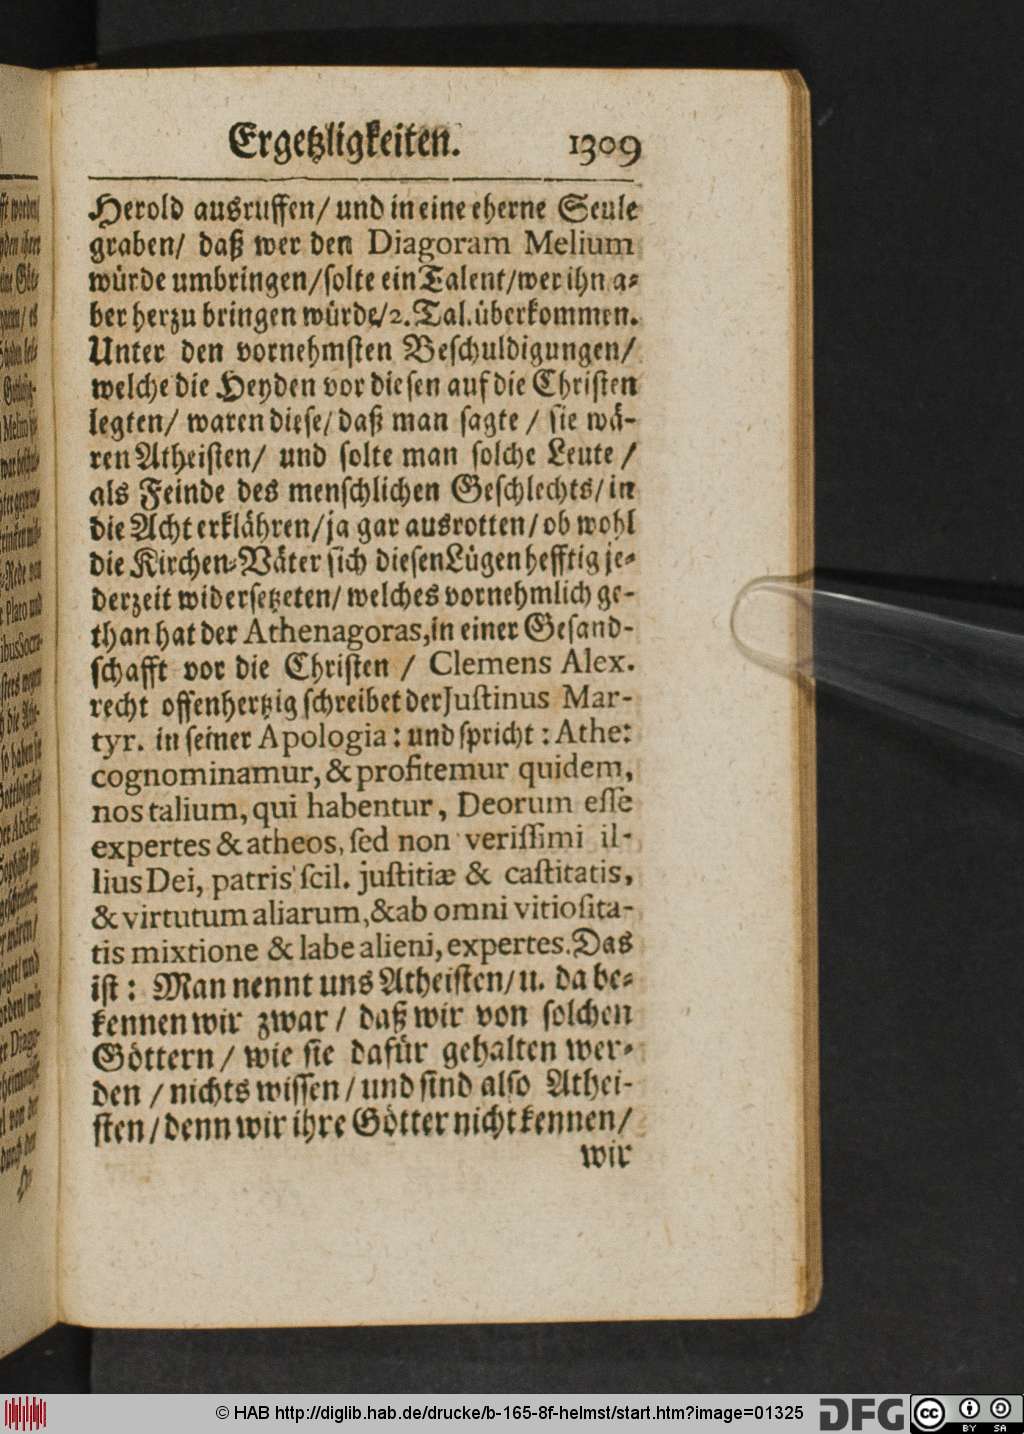 Ergetzligkeiten. 1309
Herold ausruffen/ und in eine eherne Seule
graben/ daß wer den Diagoram Melium
würde umbringen/ solte ein Talent/ wer ihn a-
ber herzu bringen würde/ 2. Tal. überkommen.
Unter den vornehmsten Beschuldigungen/
welche die Heyden vor diesen auf die Christen
legten/ waren diese/ daß man sagte / sie wä-
ren Atheisten/ und solte man solche Leute /
als Feinde des menschlichen Geschlechts/ in
die Acht erklähren/ ja gar ausrotten/ ob wohl
die Kirchen-Väter sich diesen Lügen hefftig je-
derzeit widersetzeten/ welches vornehmlich ge-
than hat der Athenagoras, in einer Gesand-
schafft vor die Christen / Clemens Alex.
recht offenhertzig schreibet der Justinus Mar-
tyr. in seiner Apologia: und spricht: Athe:
cognominamur, & profitemur quidem,
nos talium, qui habentur, Deorum esse
expertes & atheos, sed non verissimi il-
lius Dei, patris scil. justitiæ & castitatis,
& virtutum aliarum, & ab omni vitiosita-
tis mixtione & labe alieni, expertes. Das
ist: Man nennt uns Atheisten/ u. da be-
kennen wir zwar / daß wir von solchen
Göttern / wie sie dafür gehalten wer-
den / nichts wissen / und sind also Athei-
sten / denn wir ihre Götter nicht kennen /
wir
© HAB http://diglib.hab.de/drucke/b-165-8f-helmst/start.htm?image=01325
DFG
cc BY SA